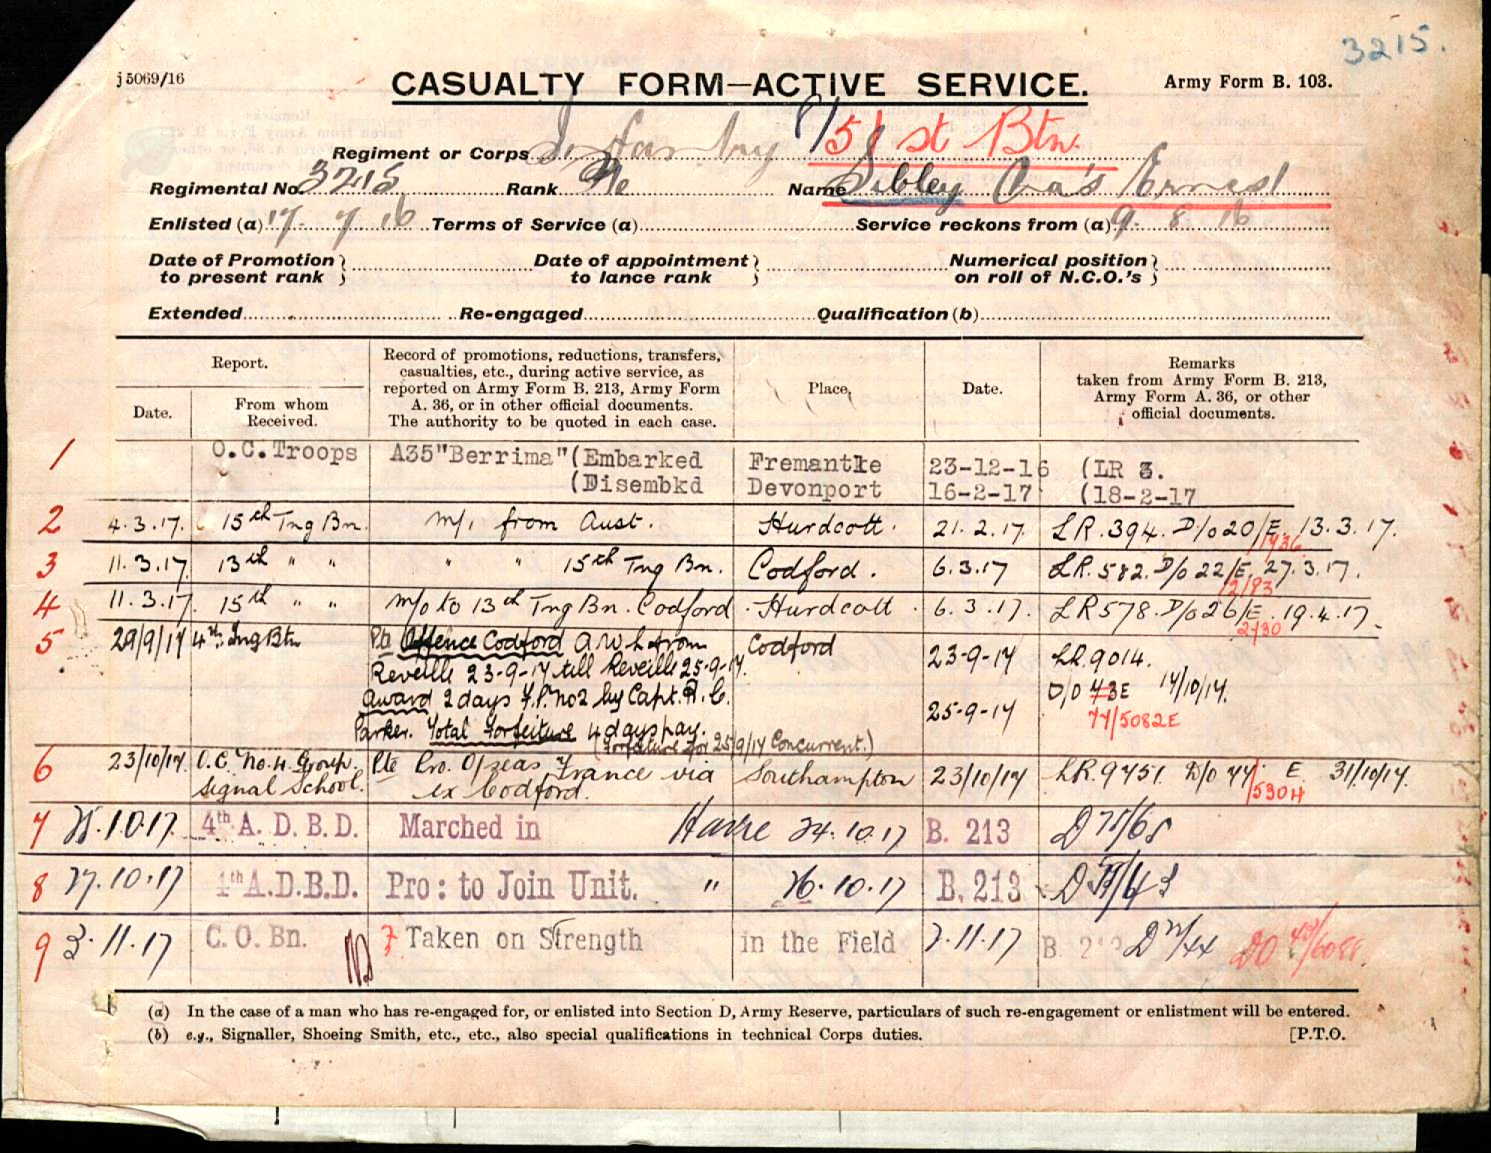 3215.
j5069/16
CASUALTY FORM—ACTIVE SERVICE.
Army Form B. 103.
51st Btn.
Regiment or Corps Infantry
Regimental No. 3215 Rank Pte Name Sibley Cha's Ernest
Enlisted (a) 17.7.16 Terms of Service (a) Service reckons from (a) 9.8.16
Date of Promotion to present rank } Date of appointment to lance rank } Numerical position on roll of N.C.O.'s }
Extended Re-engaged Qualification (b)
Report.
Date.
From whom Received.
Record of promotions, reductions, transfers,
casualties, etc., during active service, as
reported on Army Form B. 213, Army Form
A. 36, or in other official documents.
The authority to be quoted in each case.
Place,
Date.
Remarks
taken from Army Form B. 213,
Army Form A. 36, or other
official documents.
1 O.C.Troops A35"Berrima"(Embarked Fremantle 23-12-16 (LR 3.
(Disembkd Devonport 16-2-17 (18-2-17
2 4.3.17. 15th Tng Bn. m/i from Aust. Hurdcott. 21.2.17. LR.394. D/o 20/E 13.3.17.
1436
3 11.3.17. 13th " " " " 15th Tng Bn. Codford. 6.3.17 LR.582. D/o 22/E 27.3.17.
2/83
4 11.3.17. 15th " " m/o to 13th Tng Bn. Codford. Hurdcott. 6.3.17. LR 578. D/o 26/E 19.4.17.
2730
5 29/9/17 4th Tng Btn Pte Offence Codford A.W.L from Codford 23-9-17 LR.9014.
Reveille 23-9-17 till Reveille 25-9-17.
Award 2 days F.P. No2 by Capt. R.C. 25-9-17 D/O 73E 17/10/17.
77/5082E
Parker. Total Forfeiture 4 days pay.
(Forfeiture for 25/9/17 Concurrent.)
6 23/10/17 O.C. No.4 Group. Pte Pro. O/seas France via Southampton 23/10/17 LR.9751. D/o 77/ E 31/10/17.
Signal School. ex Codford. 5304
7 25.10.17. 4th A. D. B. D. Marched in Havre 24.10.17 B. 213 D 75/68
8 27.10.17 4th A.D.B.D. Pro: to Join Unit. " 26.10.17 B. 213 D
9 3.11.17 C.O.Bn. Taken on Strength in the Field 2.11.17 B. 213 D DO
(a) In the case of a man who has re-engaged for, or enlisted into Section D, Army Reserve, particulars of such re-engagement or enlistment will be entered.
(b) e.g., Signaller, Shoeing Smith, etc., etc., also special qualifications in technical Corps duties.
[P.T.O.